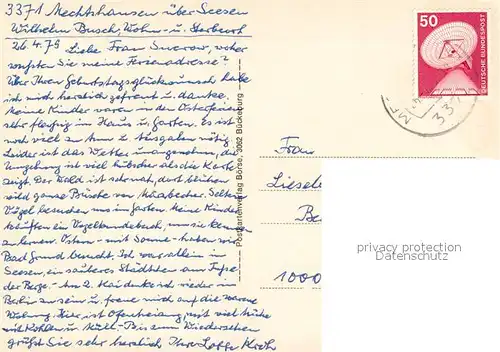 3371 Mechtshausen über Seesen
Wilhelm Busch, Wohn- u. Sterbeort
26.4.79
Liebe Frau woher
wussten Sie meine Ferienadresse?
Über Ihren Geburtstagsglückwunsch habe
ich mich herzlich gefreut u. danke.
Meine Kinder waren in den Osterferien
sehr fleissig im Haus u. Garten. Es ist
noch viel zu tun u. Ausgaben nötig.
Leider ist das Wetter unangenehm, die
Umgebung ist viel hübscher als die Karte
zeigt. Der Wald ist schon dort blühen
wild ganze Büsche von Märzbecher. Seltene
Vögel besuchen uns im Garten. Meine Kinder
kauften ein Vogelkundebuch, um sie kennen
zu lernen. Ostern - mit Sonne - haben wir
Bad Grund besucht. Ich war allein in
Seesen, ein sauberes Städtchen am Fusse
der Berge. - Am 2. Mai denke ich wieder in
Berlin zu sein u. freue mich auf die warme
Wohnung. Hier ist Ofenheizung mit viel Mühe
mit Kohlen u. Müll. - Bis zum Wiedersehen
grüßt Sie sehr herzlich Ihre Lotte
Postkartenverlag Börse, 3062 Bückeburg
50
DEUTSCHE BUNDESPOST
337
Frau
Liesel
Be
1000
privacy protection
OldThing